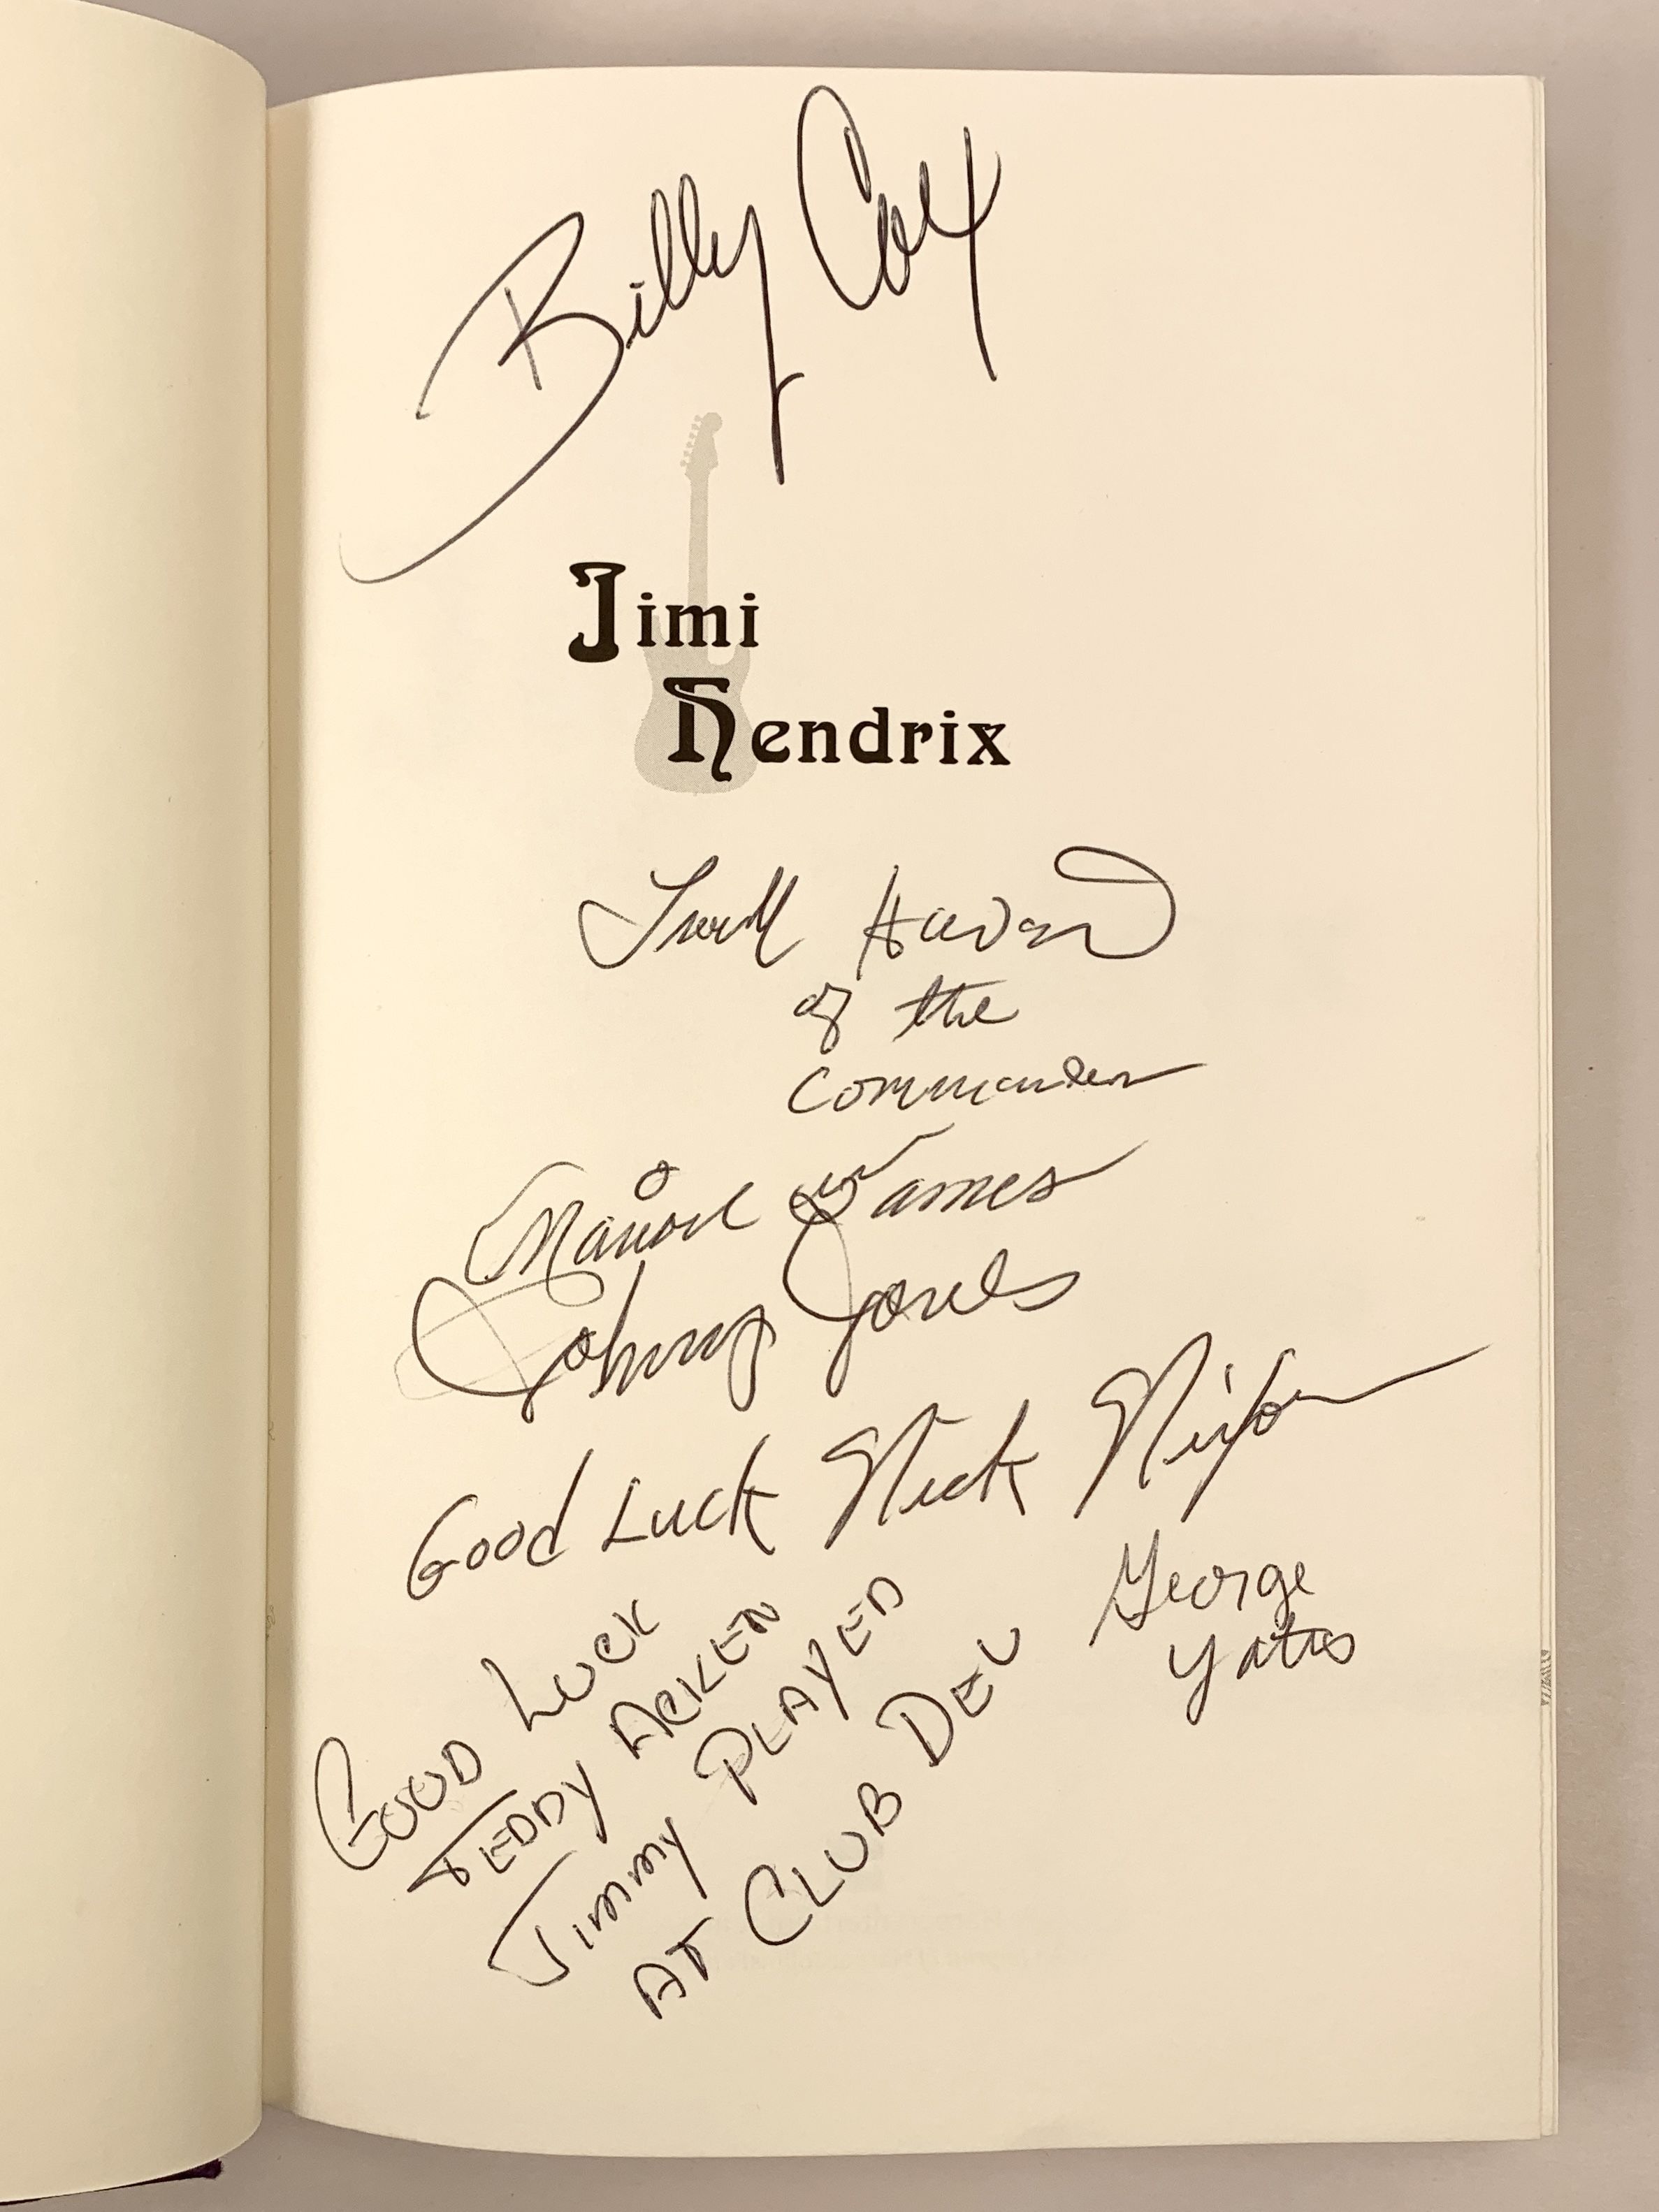 Billy Cox
Jimi
Hendrix
of the
Marion James
Johnny Jones
Good Luck Nick Nixon
George
Yates
GOOD LUCK
TEDDY ACKLEN
JIMMY PLAYED
AT CLUB DEL